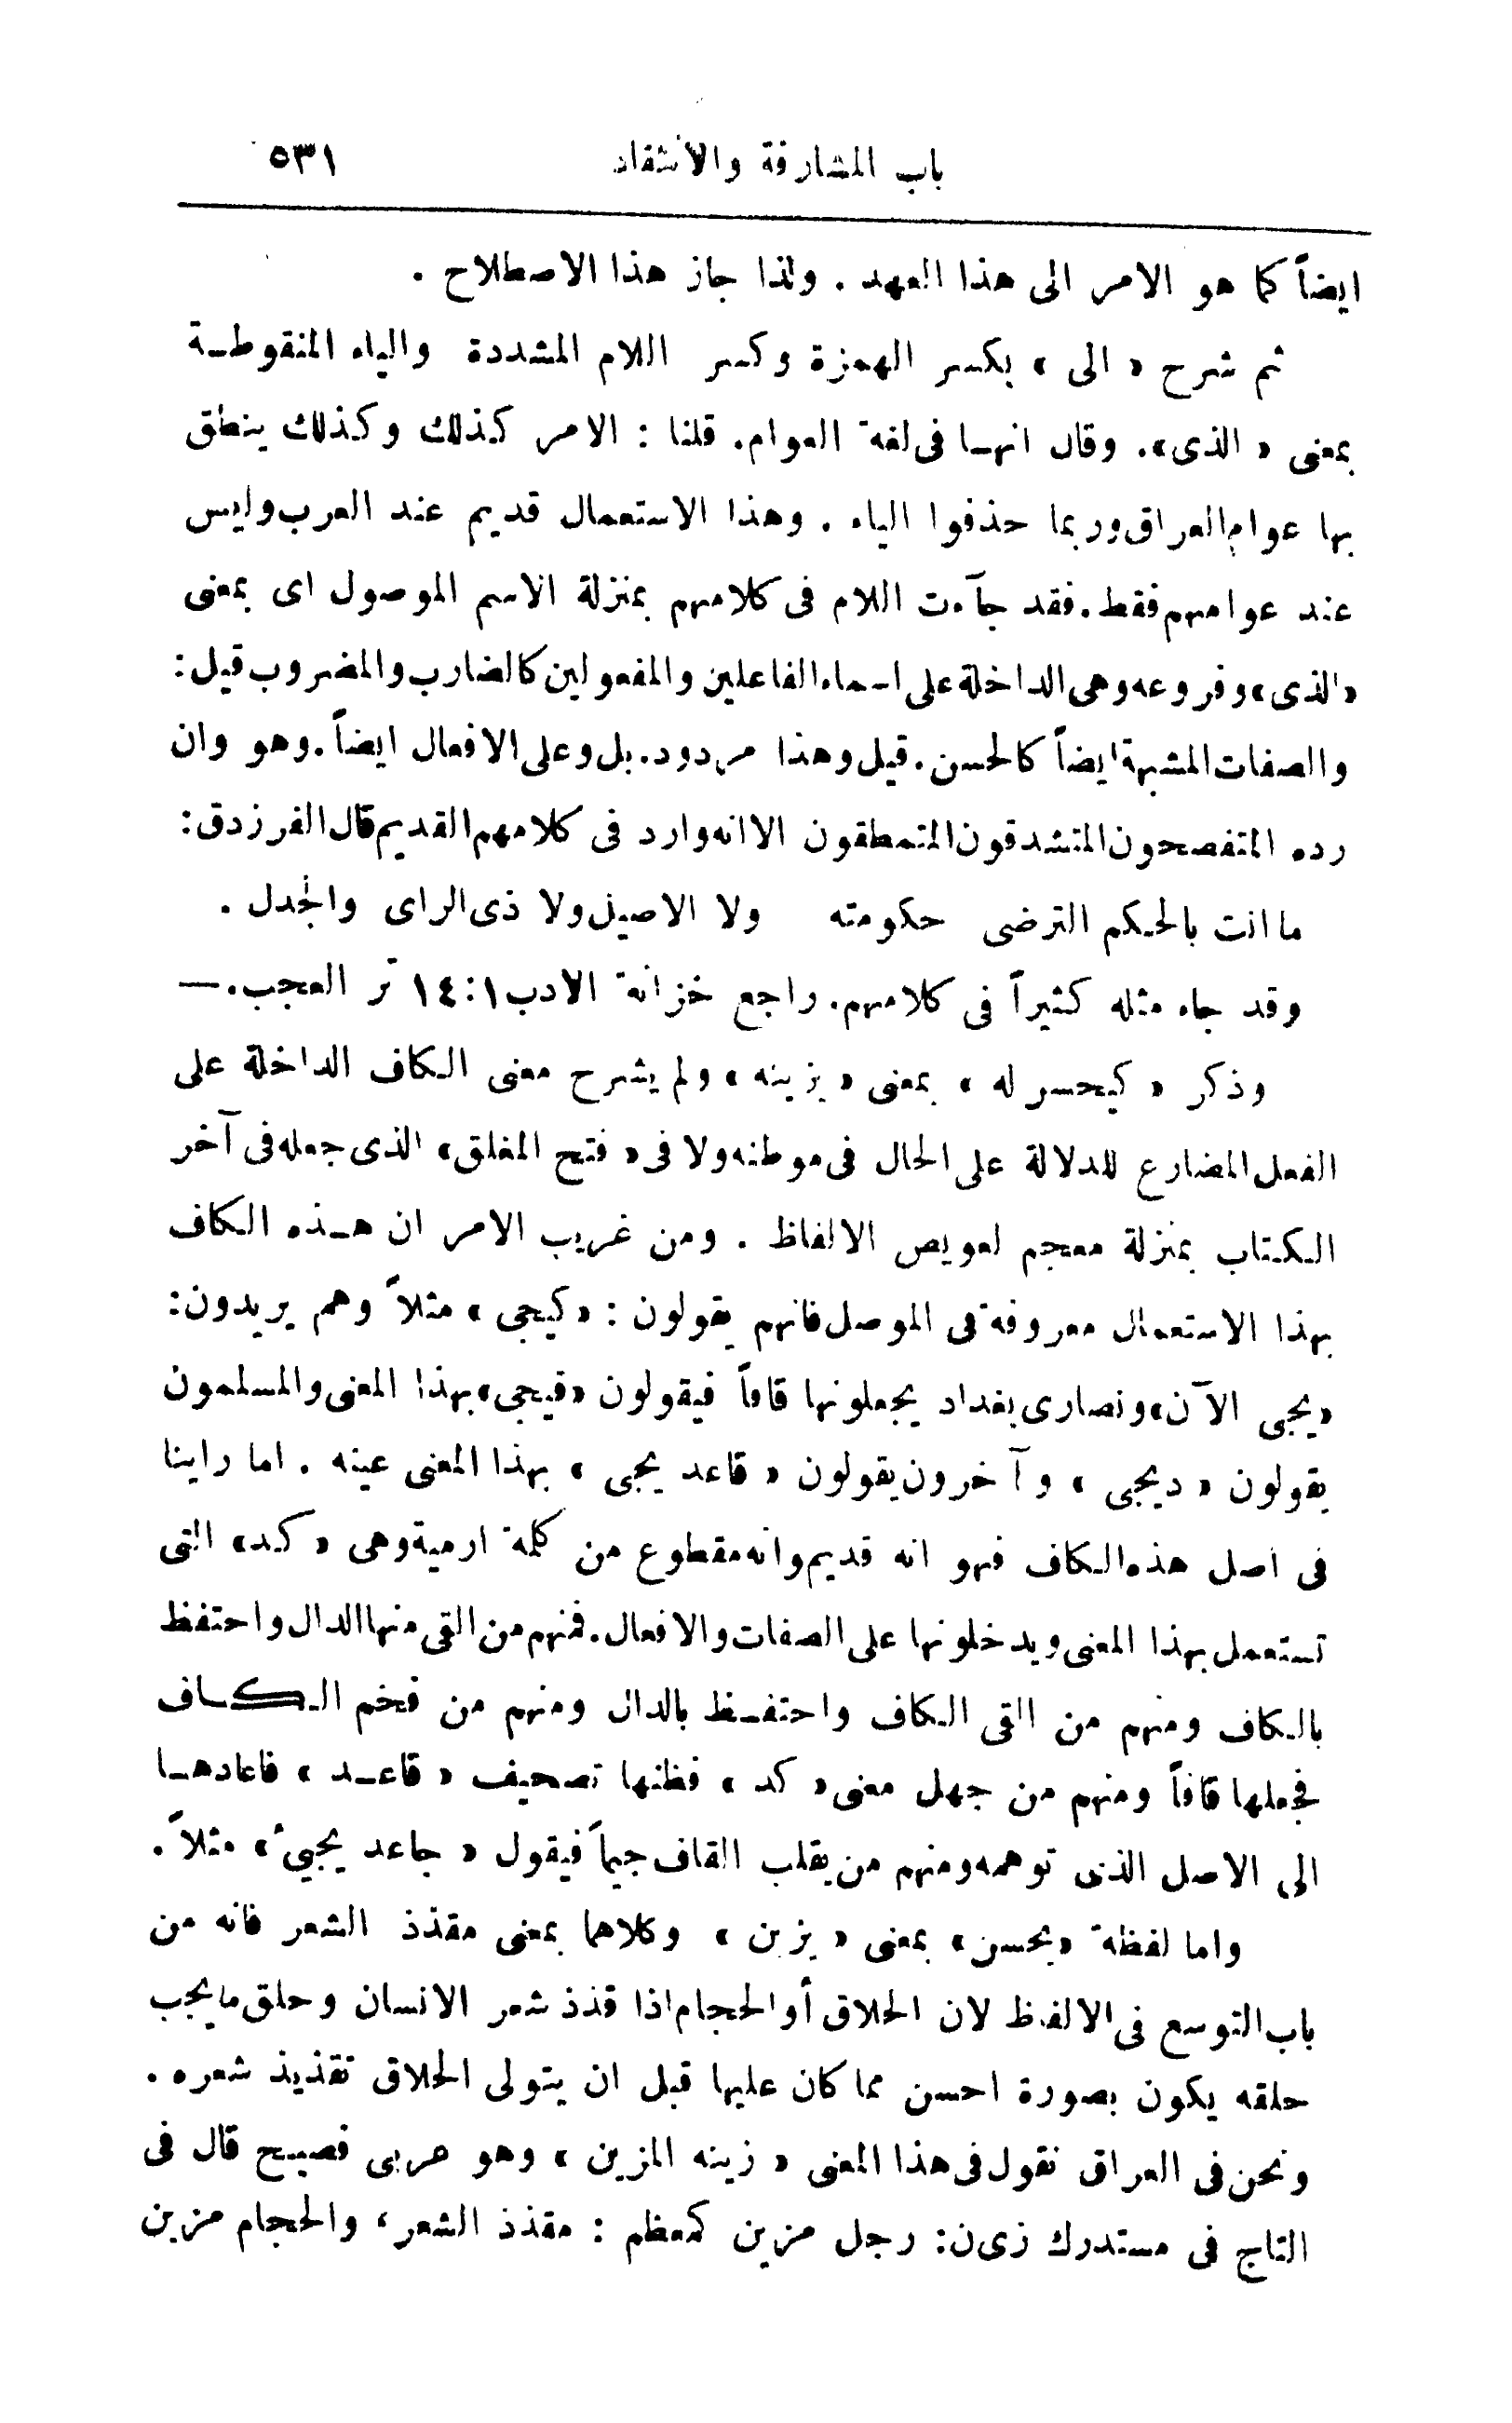 باب المشارفة والانتقاد ٥٣١
ايضاً كما هو الامر الى هذا العهد . ولذا جاز هذا الاصطلاح .
ثم شرح « الى » بكسر الهمزة وكسر اللام المشددة والياء المنقوطة
بمعنى « الذى » . وقال انها فى لغة العوام . قلنا : الامر كذلك وكذلك ينطق
بها عوام العراق وربما حذفوا الياء . وهذا الاستعمال قديم عند العرب وليس
عند عوامهم فقط . فقد جآءت اللام فى كلامهم بمنزلة الاسم الموصول اى بمعنى
« الذى » وفروعه وهى الداخلة على اسماء الفاعلين والمفعولين كالضارب والمضروب قيل :
والصفات المشبهة ايضاً كالحسن . قيل وهذا مردود . بل وعلى الافعال ايضاً . وهو وان
رده المتفصحون المتشدقون المتمطقون الا انه وارد فى كلامهم القديم قال الفرزدق :
ما انت بالحكم الترضى حكومته ولا الاصيل ولا ذى الراى والجدل .
وقد جاء مثله كثيراً فى كلامهم . راجع خزانة الادب ١ : ١٤ تر العجب . —
وذكر « كيحسر له » بمعنى « يزينه » ولم يشرح معنى الكاف الداخلة على
الفعل المضارع للدلالة على الحال فى موطنه ولا فى « فتح المغلق » الذى جعله فى آخر
الكتاب بمنزلة معجم لعويص الالفاظ . ومن غريب الامر ان هذه الكاف
بهذا الاستعمال معروفة فى الموصل فانهم يقولون : « كيجى » مثلاً وهم يريدون :
« يجى الآن » ونصارى بغداد يجعلونها قافاً فيقولون « قيجى » بهذا المعنى والمسلمون
يقولون « ديجى » وآخرون يقولون « قاعد يجى » بهذا المعنى عينه . اما راينا
فى اصل هذه الكاف فهو انه قديم وانه مقطوع من كلمة ارمية وهى « كد » التى
تستعمل بهذا المعنى ويدخلونها على الصفات والافعال . فمنهم من القى منها الدال واحتفظ
بالكاف ومنهم من القى الكاف واحتفظ بالدال ومنهم من فخم الكاف
فجعلها قافاً ومنهم من جهل معنى « كد » فظنها تصحيف « قاعد » فاعادها
الى الاصل الذى توهمه ومنهم من يقلب القاف جيماً فيقول « جاعد يجىء » مثلاً .
واما لفظة « يحسن » بمعنى « يزين » وكلاهما بمعنى مقذذ الشعر فانه من
باب التوسع فى الالفاظ لان الحلاق أو الحجام اذا قذذ شعر الانسان وحلق ما يجب
حلقه يكون بصورة احسن مما كان عليها قبل ان يتولى الحلاق تقذيذ شعره .
ونحن فى العراق نقول فى هذا المعنى « زينه المزين » وهو عربى فصيح قال فى
التاج فى مستدرك زىن : رجل مزين كمعظم : مقذذ الشعر ، والحجام مزين